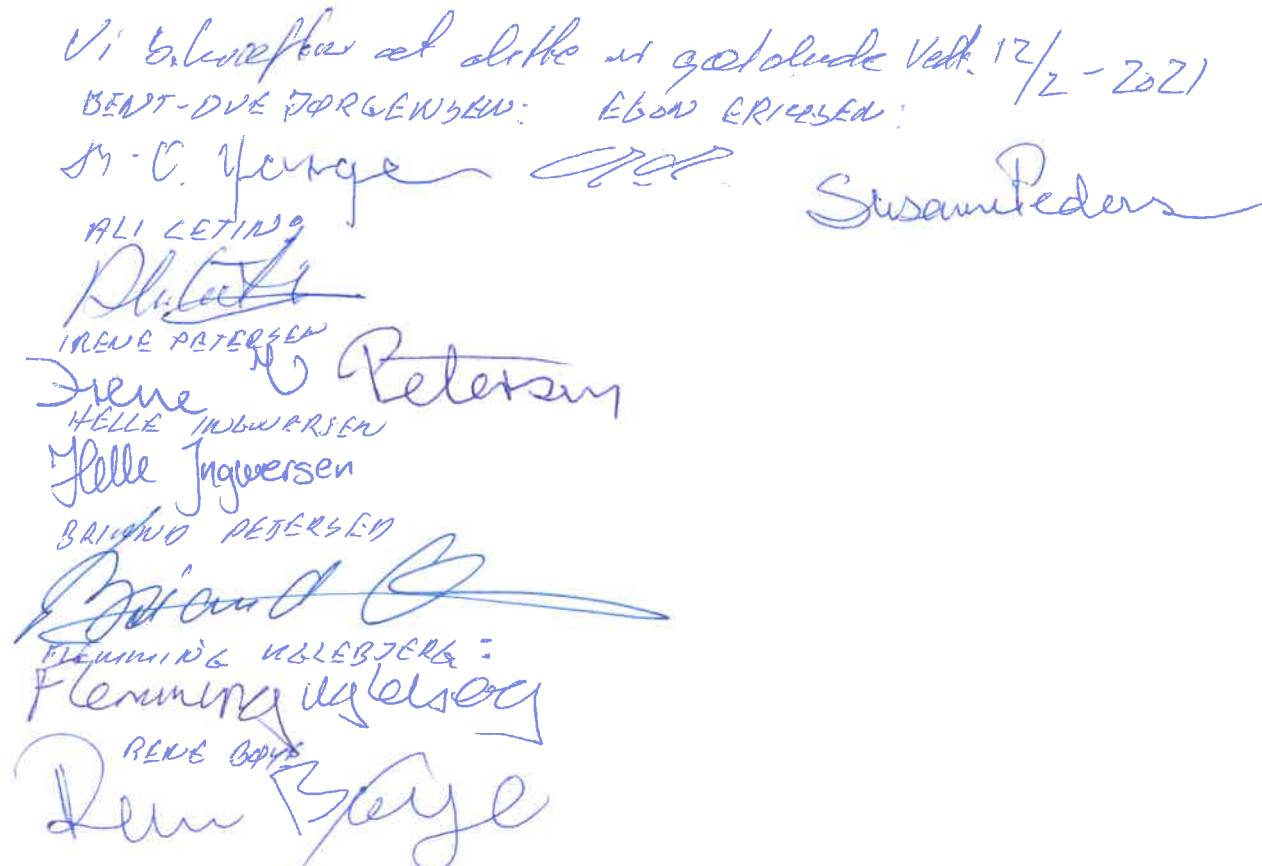 Vi bekræfter at dette er gældende Vedt. 12/2 - 2021
BENT-OVE JØRGENSEN: EBON ERICHSEN:
B-O. Jørgen
Susanne Peders
ALI CETIN
IRENE PETERSEN
Irene Petersen
HELLE INGWERSEN
Helle Ingwersen
BRIAND PETERSEN
Briand
FLEMMING UGLEBJERG:
Flemming Uglebjerg
RENE BØYE
Rene Bøye